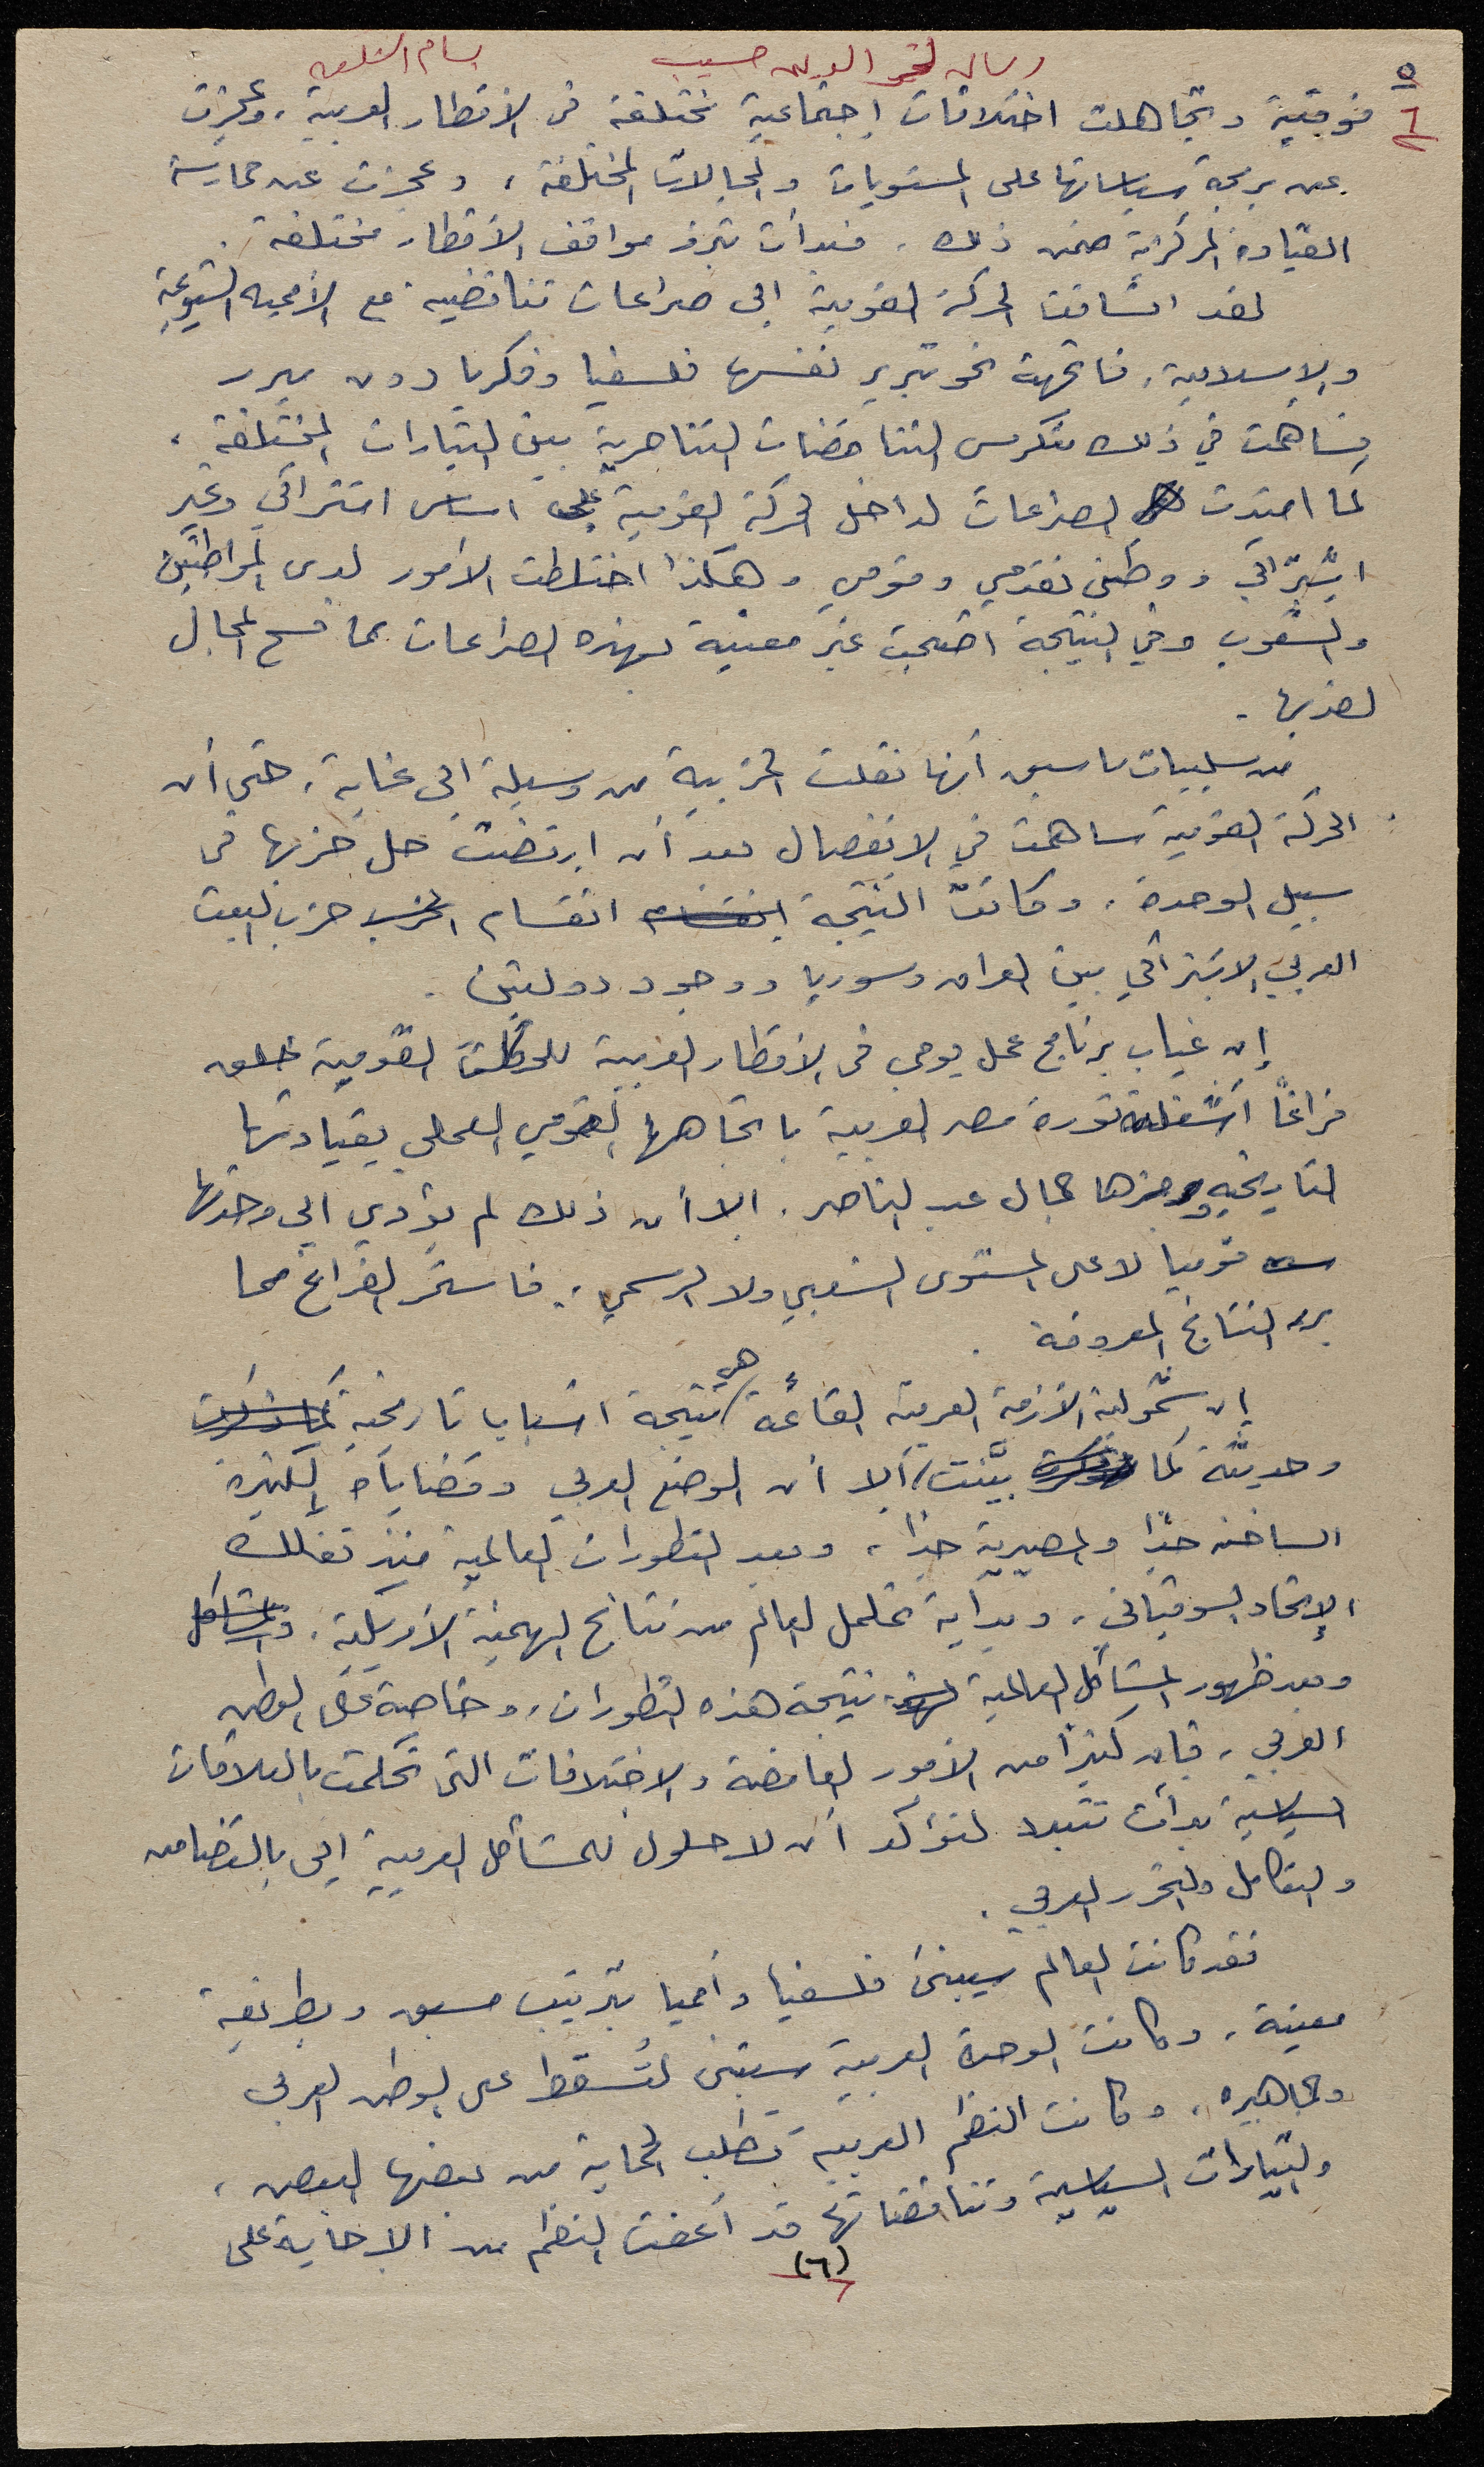 رسالة لخير الدين حسيب بسام الشكعة
٥
٦
فوقية وتجاهلت اختلافات إجتماعية مختلفة في الأقطار العربية، وعجزت
عن برمجة سياساتها على المستويات والمجالات المختلفة، وعجزت عن ممارسة
القيادة المركزية ضمن ذلك، فبدأت تبرز مواقف الأقطار مختلفة.
لقد انساقت الحركة القومية الى صراعات تناقضية مع الأممية الشيوعية
والإسلامية، فاتجهت نحو تبرير نفسها فلسفيا وفكريا دون مبرر
فساهمت في ذلك بتكريس التناقضات التناحرية بين التيارات المختلفة،
كما امتدت الصراعات لداخل الحركة القومية على اساس اشتراكي وغير
اشتراكي ووطني تقدمي وقومي وهكذا اختلطت الأمور لدى المواطنين
والشعوب وفي النتيجة اضحت غير معنية بهذه الصراعات مما فسح المجال
لضربها.
من سلبيات ما سبق أنها نقلت الحزبية من وسيلة الى غاية، حتى أن
الحركة القومية ساهمت في الانفصال بعد أن ارتضت حل حزبها في
سبيل الوحدة، وكانت النتيجة انقسام حزب البعث
العربي الاشتراكي بين العراق وسوريا ووجود دولتين.
إن غياب برنامج عمل يومي في الأقطار العربية للحركة القومية خلق
فراغاً أشغلته ثورة مصر العربية باتجاهها القومي العملي بقيادتها
التاريخية ورمزها جمال عبد الناصر. الا أن ذلك لم يؤدي الى وحدتها
قوميا لا على المستوى الشعبي ولا الرسمي، فاستمر الفراغ مما
برر النتائج المعروفة.
إن شمولية الأزمة العربية القائمة هي نتيجة اسباب تاريخية
وحديثة كما بيَّنت، ألا أن الوضع العربي وقضاياه الكثيرة
الساخنة جدًا والمصيرية جدًا، وبعد التطورات العالمية منذ تفكك
الإتحاد السوفياتي، وبداية تململ العالم من نتائج الهيمنة الأمريكية،
وبعد ظهور المشاكل العالمية نتيجة هذه التطورات، وخاصة في الوطن
العربي، فإن كثيرًا من الأمور الغامضة والاختلافات التي تحكمت بالعلاقات
السياسية بدأت تتبدد لتؤكد أن لا حلول للمشاكل العربية إلى بالتضامن
والتكامل والتحرر العربي.
فقد كانت العالم سيبنى فلسفيا وأمميا بترتيب مسبق وبطريقة
معينة، وكانت الوحدة العربية ستبنى لتُسقط على الوطن العربي
وجماهيره، وكانت النظم العربية تطلب الحماية من بعضها البعض،
والتيارات السياسية وتناقضاتها قد أعفت النظم من الاجابة على
(٦)